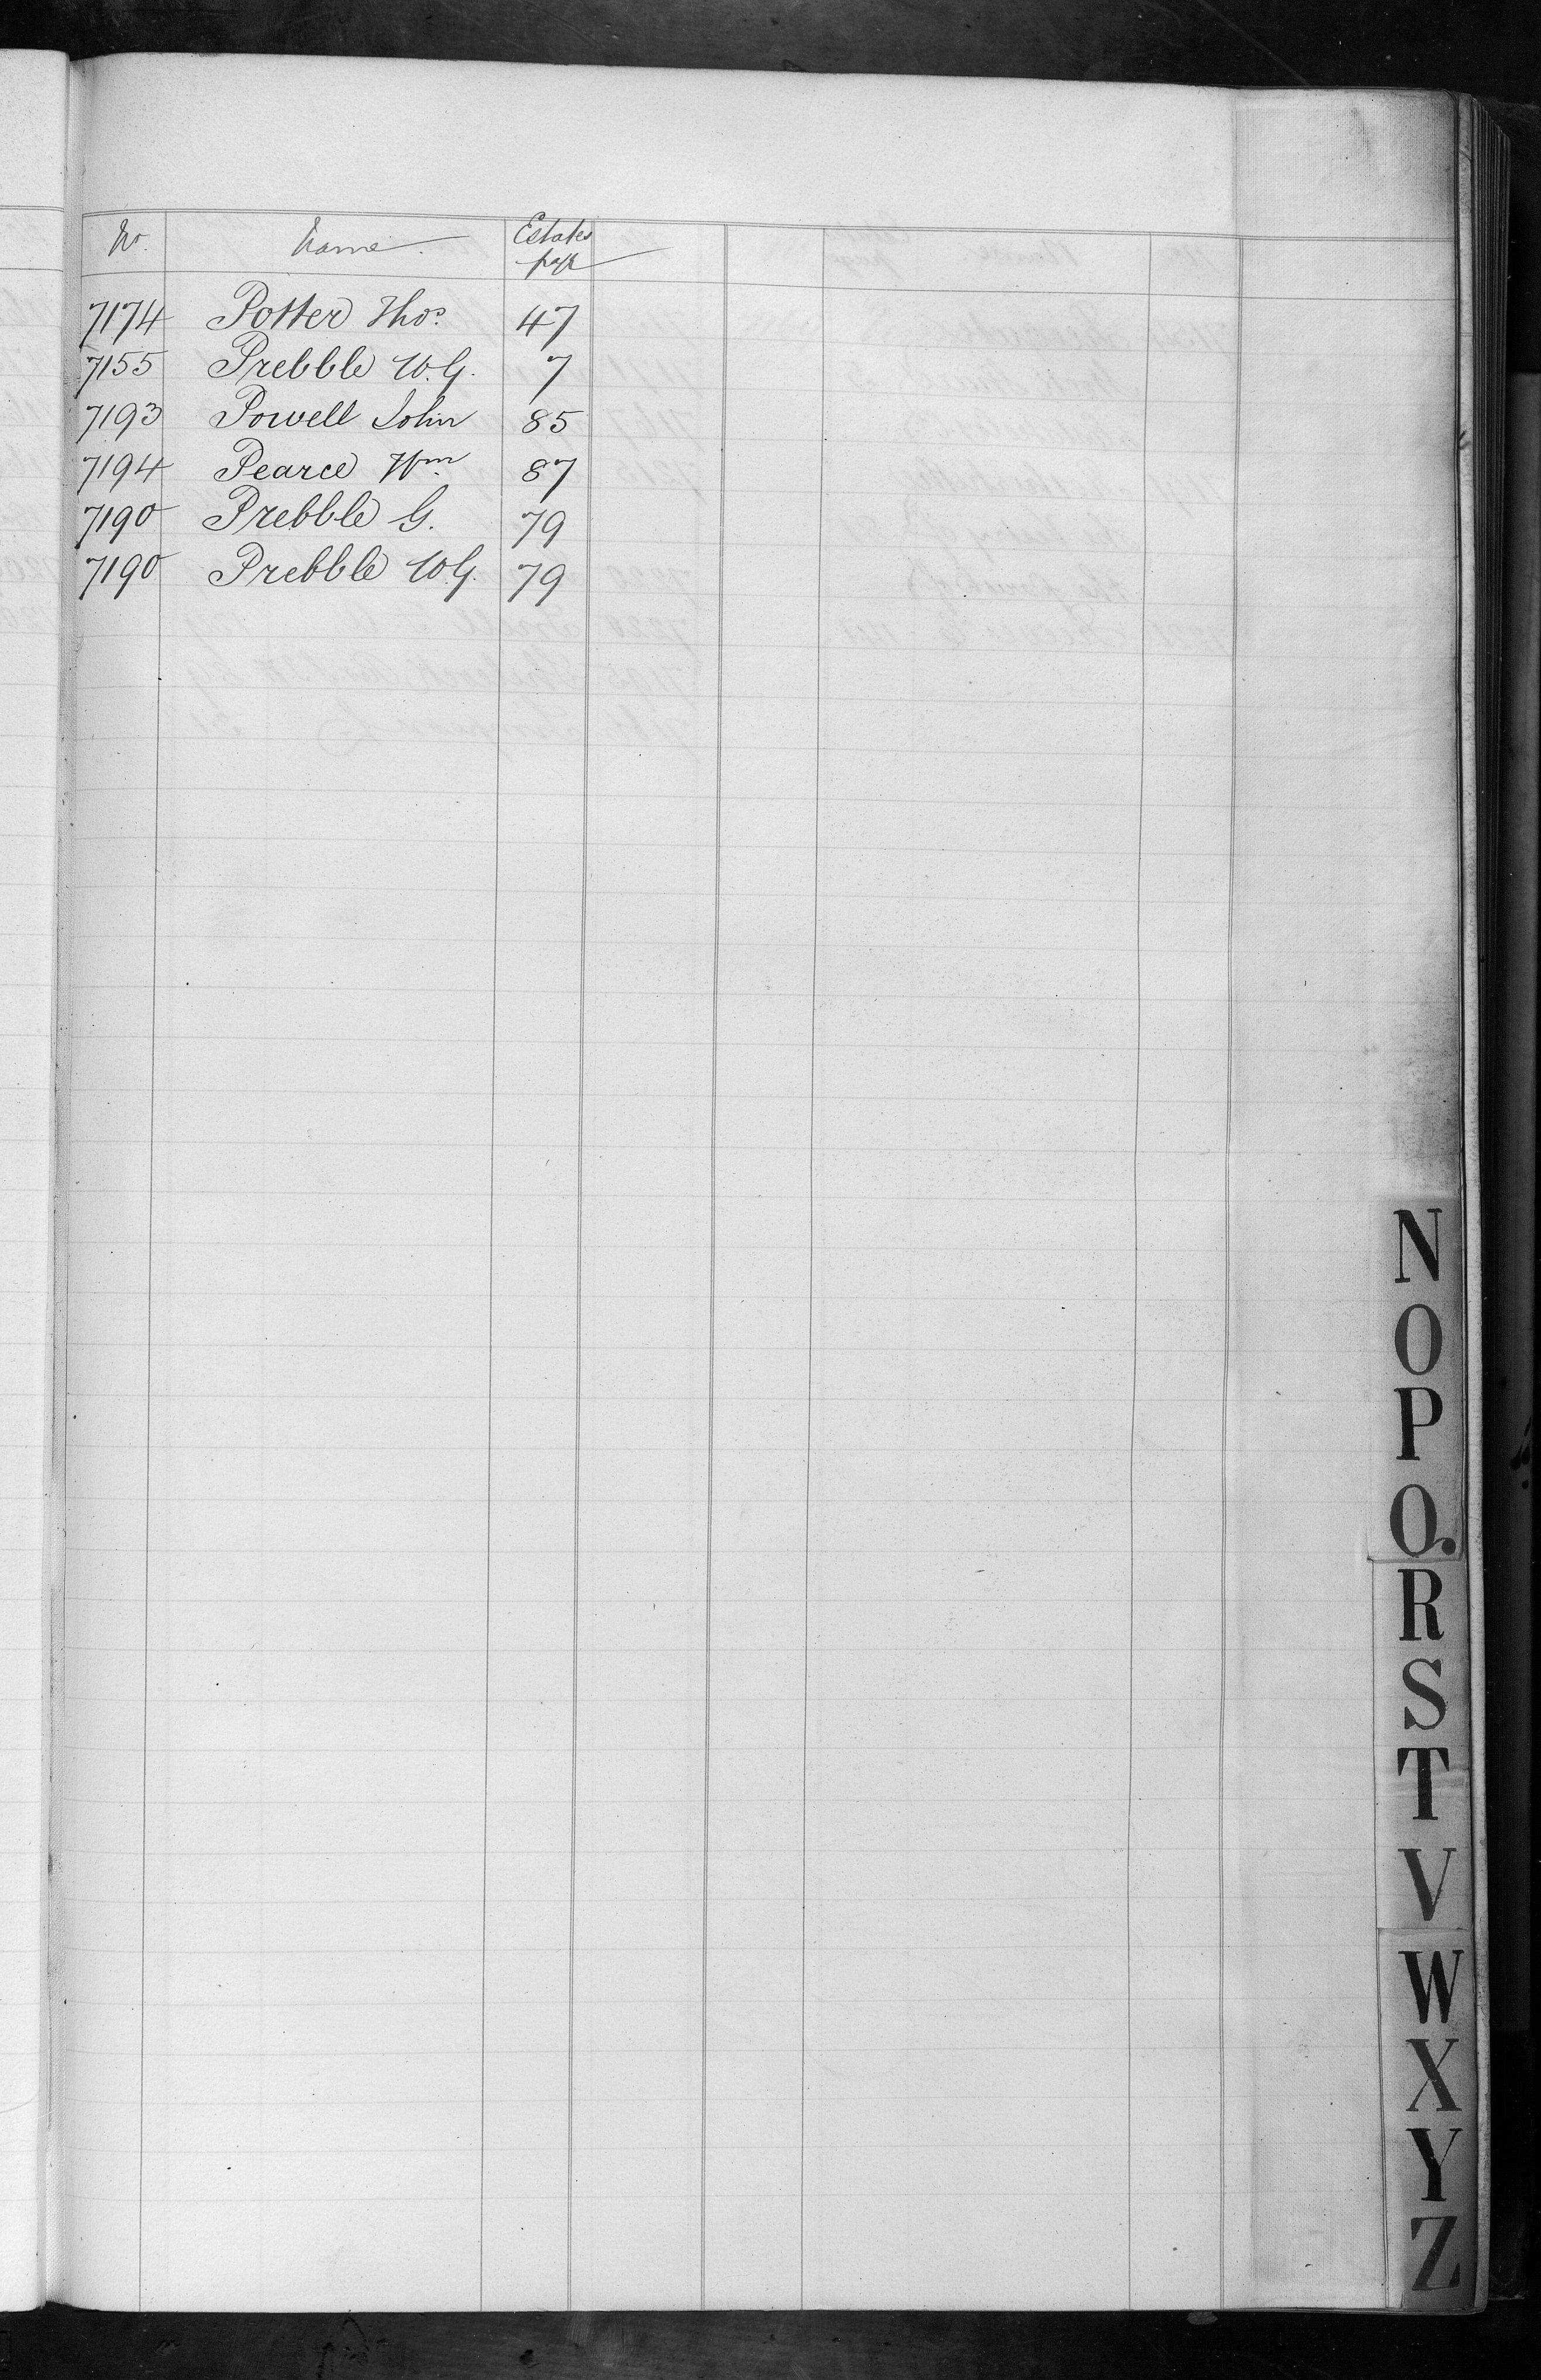 No. Name. Estates page
7174 Potter Thos. 47
7155 Prebble W.G. 7
7193 Powell John 85
7194 Pearce Wm. 87
7190 Prebble G. 79
7190 Prebble W.G. 79
N
O
P
Q.
R
S
T
V
W
X
Y
Z